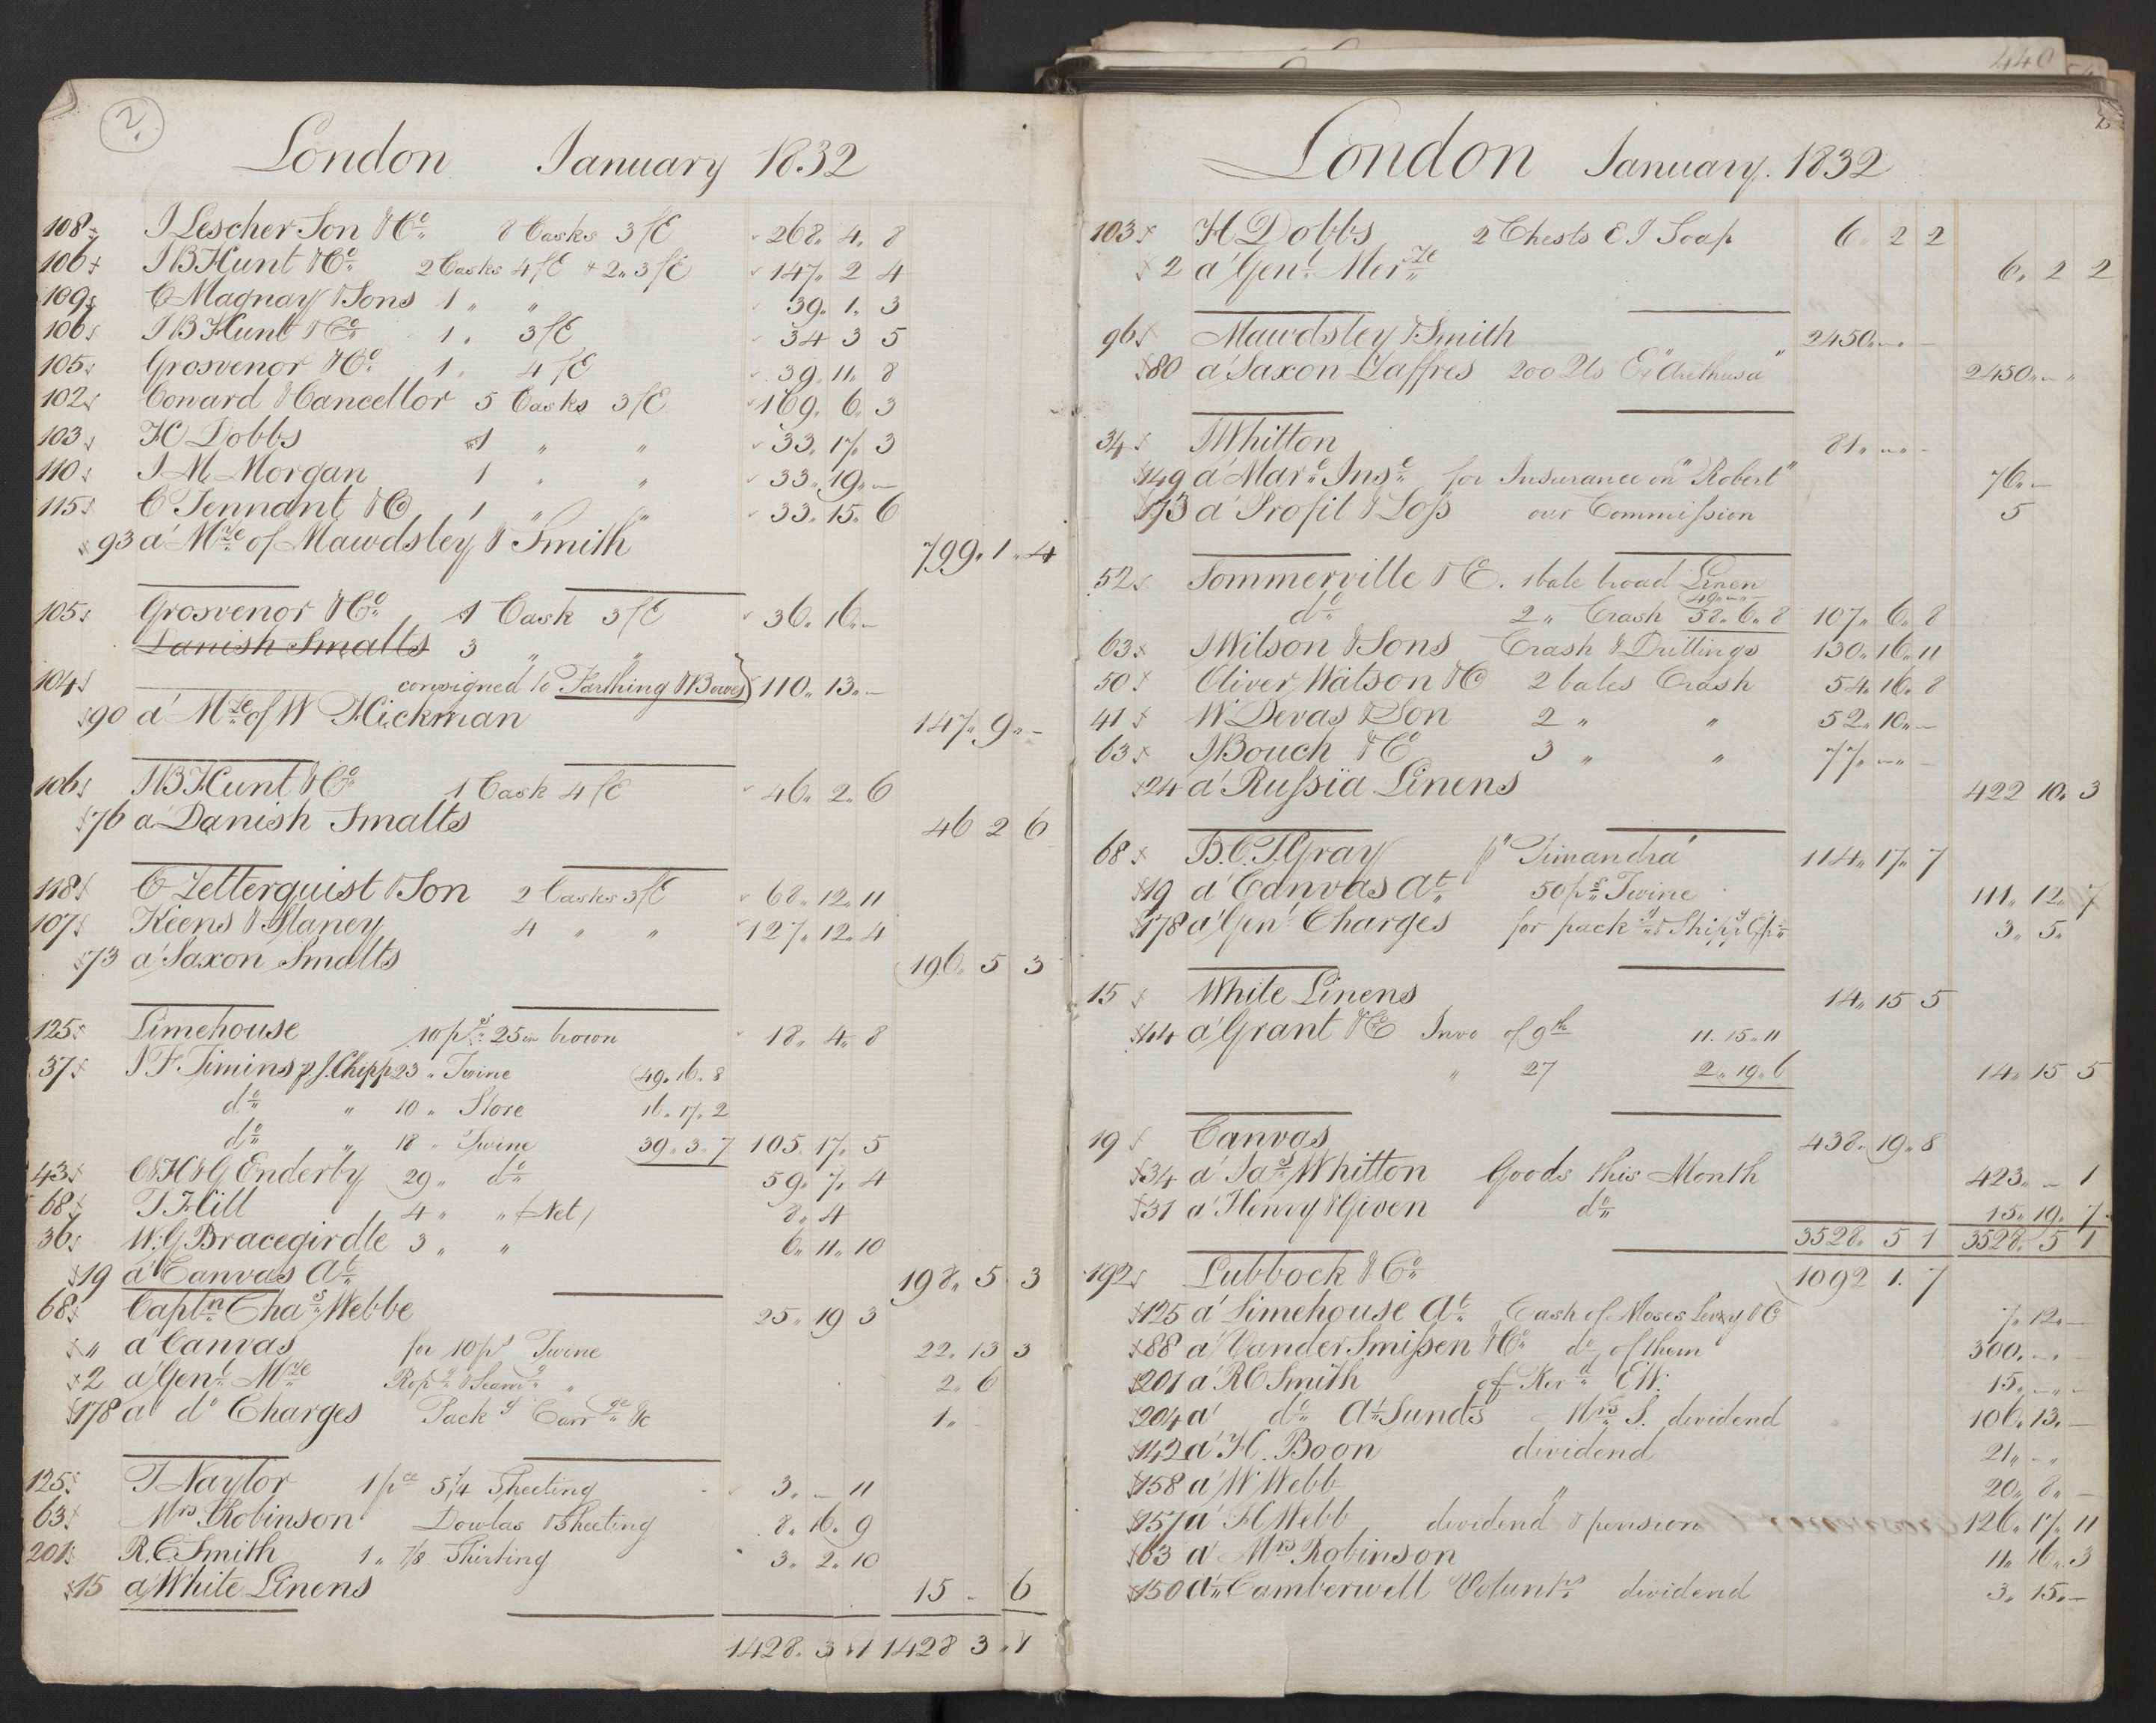 2.
London January 1832
108 I Lescher Son & Co. 8 Casks 3/C 268. 4. 8
106 I B Hunt & Co. 2 Casks 4/C & 2 " 3/C 147 " 2 4
109 C Magnay & Sons 1 " " 39. 1. 3
106 I B Hunt & Co 1 " 3/C 34 3 5
105 Grosvenor & Co. 1 " 4/C 39. 11. 8
102 Conard & Cancellor 5 Casks 3/C 169. 6. 3
103 H Dobbs 1 " " 33. 17. 3
110 I M Morgan 1 " " 33. 19 " –
115 C Tennant & Co 1 " " 33. 15. 6
93 a' Mze of Mawdsley & Smith 799. 1. 4
105 Grosvenor & Co. 1 Cask 3/C 36. 16. –
Danish Smalts 3 " "
104 consigned to Farthing & Bowes } 110. 13. –
90 a' Mze of W Hickman 147. 9. –
106 I B Hunt & Co. 1 Cask 4/C 46. 2. 6
76 a' Danish Smalts 46 2 6
118 C Zetterquist & Son 2 Casks 3/C 68. 12. 11
107 Keens & Slaney 4 " " 127. 12. 4
73 a' Saxon Smalts 196. 5 3
125 Limehouse 10 ps. 25 in brown 18. 4. 8
37 I F Timins p. J. Chipp 23 " Twine 49. 16. 8
do " 10 " Store 16. 17. 2
do " 18 " Twine 39. 3. 7 105. 17. 5
43 C & H & G Enderby 29 " do 59. 7. 4
68 T Hill 4 " " /Net/ 8. 4
36 W. G Bracegirdle 3 " " 6. 11. 10
19 a' Canvas At. 198. 5. 3
68 Captn Chas. Webbe 25. 19 3
" a' Canvas for 10 ps Twine 22. 13 3
2 a' Genl Mze 2. 6
178 a' do Charges Packg Carrge &c 1. –
125 T Naylor 1 pce 5/4 Sheeting 3. – 11
63 Mrs Robinson Dowlas & Sheeting 8. 16. 9
201 R. C. Smith 1 " 7/8 Shirting 3. 2. 10
15 a' White Linens 15 " 6
1428. 3. 1 1428 3. 1
440
2
London January. 1832
103 H Dobbs 2 Chests E I Soap 6. 2 2
2 a' Genl. Merze 6. 2 2
96 Mawdsley & Smith 2450 " – " –
80 a' Saxon Zaffres 200 Ex "Arethusa" 2450 " – "
34 I Whitton 81 " – " –
149 a' Mare. Inse. for Insurance on "Robert" 76. –
173 a' Profit & Loss our Commission 5
52 Sommerville & C. 1 bale broad Linen 49 " – " –
do 2 " Crash 58. 6. 8 107. 6. 8
63 I Wilson & Sons Crash & Drillings 130. 16. 11
50 Oliver Watson & Co 2 bales Crash 54. 16. 8
41 W Devas & Son 2 " " 52. 10. –
63 I Bouch & Co 3 " " 77. – " –
24 a' Russia Linens 422 10. 3
68 B. C. T. Gray p "Timandra" 114. 17. 7
19 a' Canvas At. 50 ps. Twine 111. 12. 7
178 a' Genl Charges for packg. & Shipg. 3. 5.
15 White Linens 14. 15 5
44 a' Grant & Co Invo of 9th 11. 15. 11
" 27 2. 19. 6 14. 15 5
19 Canvas 438. 19. 8
34 a' Jas. Whitton Goods this Month 423. – 1
31 a' Henry & Given do 15. 19. 7
3528. 5 1 3528. 5 1
192 Lubbock & Co. 1092 1. 7
125 a' Limehouse At. Cash of Moses Levy & Co 7. 12. –
88 a' Vander Smissen & Co. do of them 300. – . –
201 a' R C Smith of Revd EW. 15. – " –
204 a' do At Sunds Mrs S. dividend 106. 13. –
142 a' H. Boon dividend 21 " – "
158 a' W Webb " 20. 8. –
157 a' H Webb dividend & pension 126. 17. 11
63 a' Mrs Robinson 11. 16. 3
150 a' Camberwell Voluntrs. dividend 3. 15. –